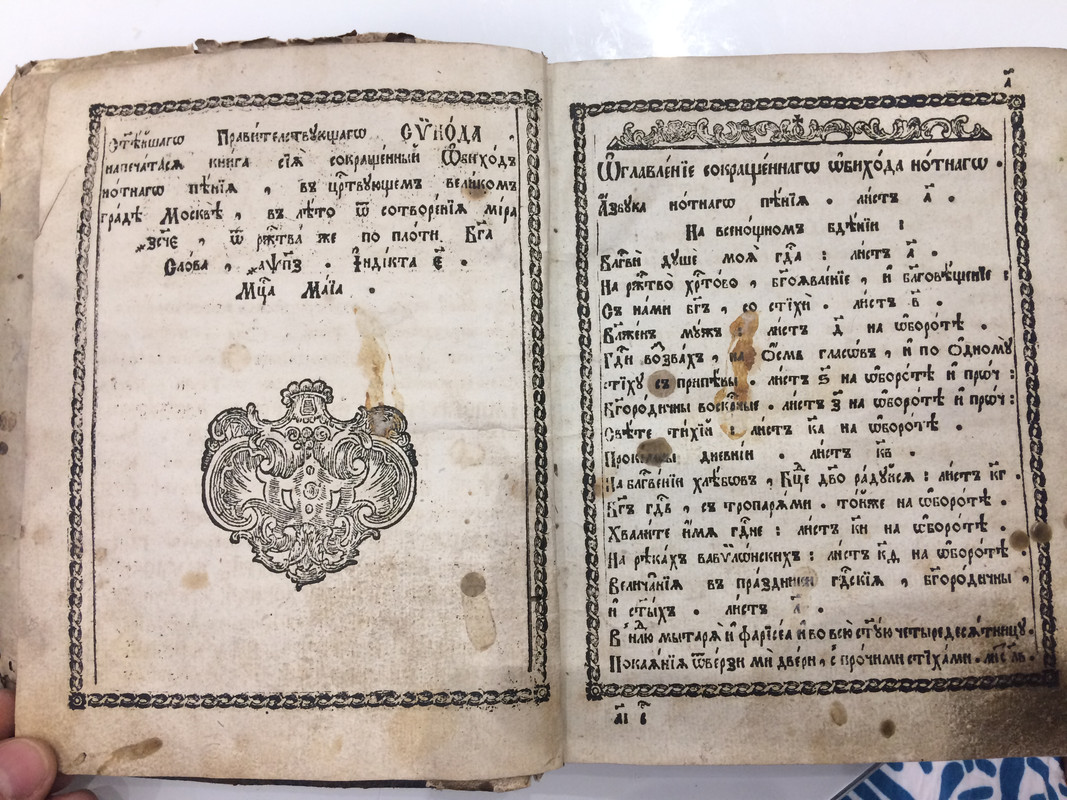 Ст҃ѣ́йшагѡ Прави́телствующагѡ СѴНО́ДА ,
напеча́тасѧ книга сїѧ̀ сокраще́нный Ѻбихо́дъ
но́тнагѡ пѣ́нїѧ , въ црⷭ҇твующемъ вели́комъ
гра́дѣ Москвѣ̀ , въ лѣ́то ѿ сотворе́нїѧ мі́ра
҂зс҃че , ѿ ржⷭ҇тва́ же по пло́ти Бг҃а
Сло́ва , ҂аѱп҃з . І҆ндїкта е҃ .
Мцⷭ҇а Ма́їа .
а҃
Ѡ҆главле́нїе сокраще́ннагѡ ѡ҆бихо́да но́тнагѡ .
А҆́збука но́тнагѡ пѣ́нїѧ . ли́стъ а҃ .
На всено́щномъ бдѣ́нїи :
Блг҇вѝ душе моѧ̀ гдⷭ҇а : ли́стъ а҃ .
На ржⷭ҇тво̀ хрⷭ҇то́во , бг҃оѧвле́нїе , и҆ блг҃овѣ́щенїе :
Съ на́ми бг҃ъ , со стїхѝ . ли́стъ в҃ .
Бл҃же́нъ му́жъ : ли́стъ д҃ на ѡ҆боро́тѣ .
Гдⷭ҇и воззва́хъ , на ѻ҆́смь гласѡ́въ , и҆ по ѻ҆дному̀
стїху̀ съ припѣ́вы . ли́стъ ѕ҃ на ѡ҆боро́тѣ и҆ про́ч :
Бг҃оро́дичны воскрⷭ҇ные . ли́стъ з҃ на ѡ҆боро́тѣ и҆ про́ч :
Свѣ́те ти́хїй : ли́стъ к҃а на ѡ҆боро́тѣ .
Проки́мны дневні́и . ли́стъ к҃в .
На блг҇ве́нїи хлѣ́бѡвъ , Бц҃е дв҃о ра́дуйсѧ : ли́стъ к҃г .
Бг҃ъ гдⷭ҇ь , съ тропарѧ́ми . то́йже на ѡ҆боро́тѣ .
Хвали́те и҆́мѧ гдⷭ҇не : ли́стъ к҃и на ѡ҆боро́тѣ .
На рѣка́хъ вавѷлѡ́нскихъ : ли́стъ к҃д на ѡ҆боро́тѣ .
Велича̑нїѧ въ пра́здники гдⷭ҇скїѧ , бг҃оро́дичны ,
и҆ ст҃ы́хъ . ли́стъ .
В нⷣлю мытарѧ̀ и҆ фарїсе́а и҆ во всю̀ ст҃у́ю четыредесѧ́тницу .
Покаѧ́нїѧ ѿве́рзи ми две́ри , с про́чими стїха́ми .